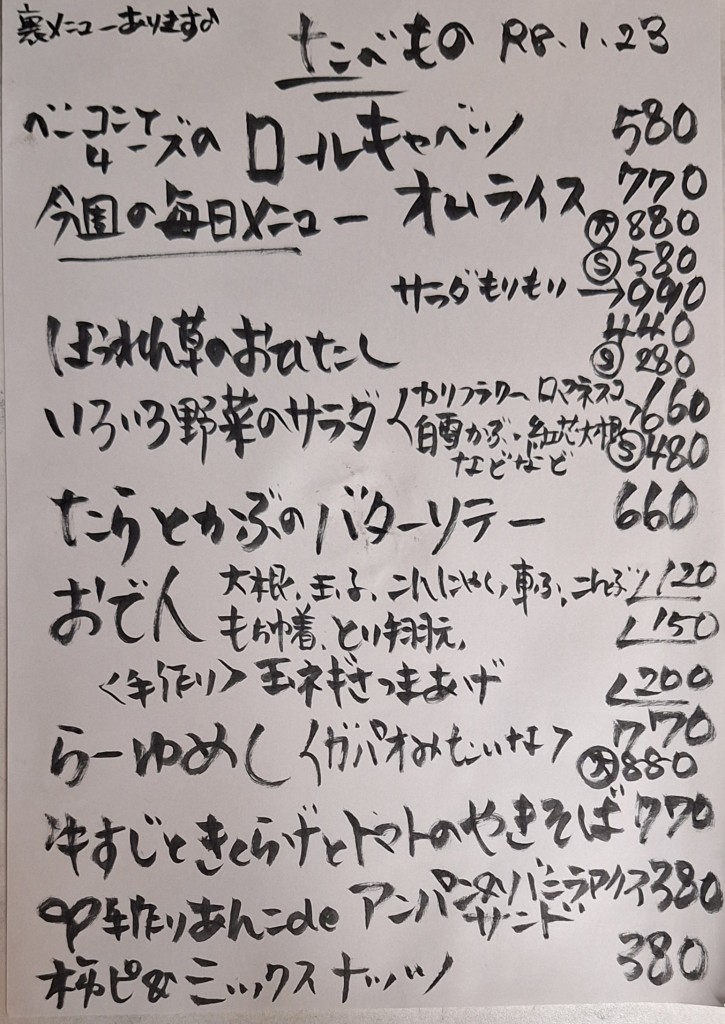 裏メニューあります♪
たこべもの R8.1.23
ベーコンチーズの ロールキャベツ 580
今週の毎日メニュー オムライス 770
大 880
S 580
サラダもりもり→990
ほうれん草のおひたし 440
S 280
いろいろ野菜のサラダ〈カリフラワー ロマネスコ 660
白雪かぶ・紅芯大根 S 480
などなど
たらとかぶのバターソテー 660
おでん 大根、玉子、こんにゃく、車ふ、こんぶ 120
もち巾着、とり手羽元、 150
〈手作り〉玉ネギさつまあげ 200
らーゆめし〈ガパオみたいな〉 770
大 880
牛すじときくらげとトマトのやきそば 770
手作りあんこde アンパン&バニラアイスサンド 380
柿ピ&ミックスナッツ 380